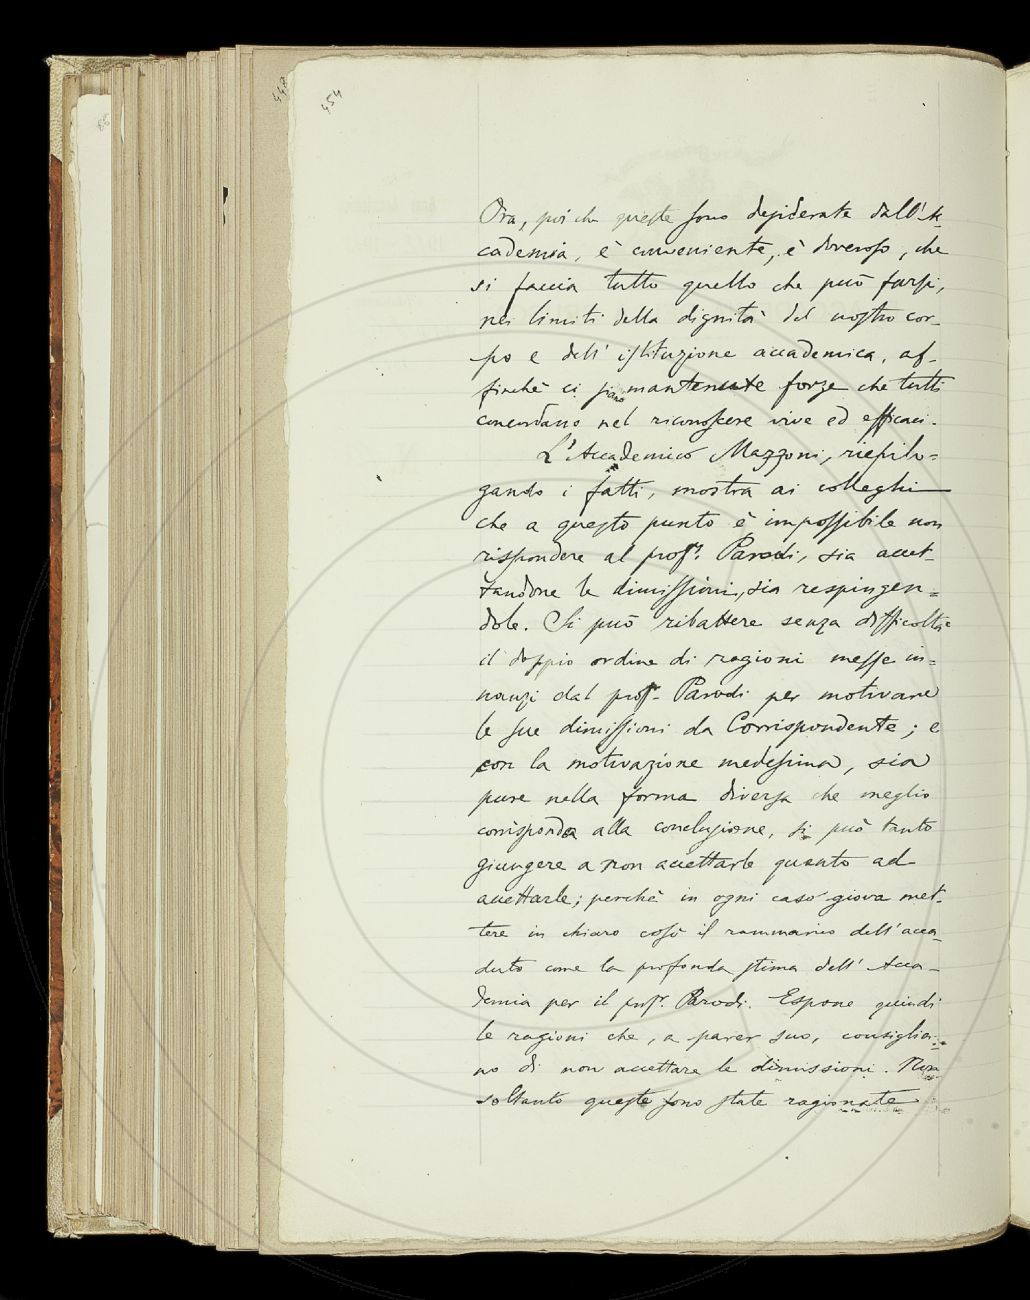 448
454
Ora, poi che queste sono desiderate dall'Ac-
cademia, è conveniente, è doveroso, che
si faccia tutto quello che può farsi,
nei limiti della dignità del nostro cor-
po e dell'istituzione accademica, af-
finchè ci siano mantenute forze che tutti
concordano nel riconoscere vive ed efficaci.
L'Accademico Mazzoni, riepilo=
gando i fatti, mostra ai colleghi
che a questo punto è impossibile non
rispondere al prof. Parodi, sia accet-
tandone le dimissioni, sia respingen=
dole. Si può ribattere senza difficoltà
il doppio ordine di ragioni messe in=
nanzi dal prof. Parodi per motivare
le sue dimissioni da Corrispondente; e
con la motivazione medesima, sia
pure nella forma diversa che meglio
corrisponda alla conclusione, si può tanto
giungere a non accettarle quanto ad
accettarle; perchè in ogni caso giova met-
tere in chiaro così il rammarico dell'acca-
duto come la profonda stima dell'Acca-
demia per il prof. Parodi. Espone quindi
le ragioni che, a parer suo, consiglia-
no di non accettare le dimissioni. Non
soltanto queste sono state ragionate